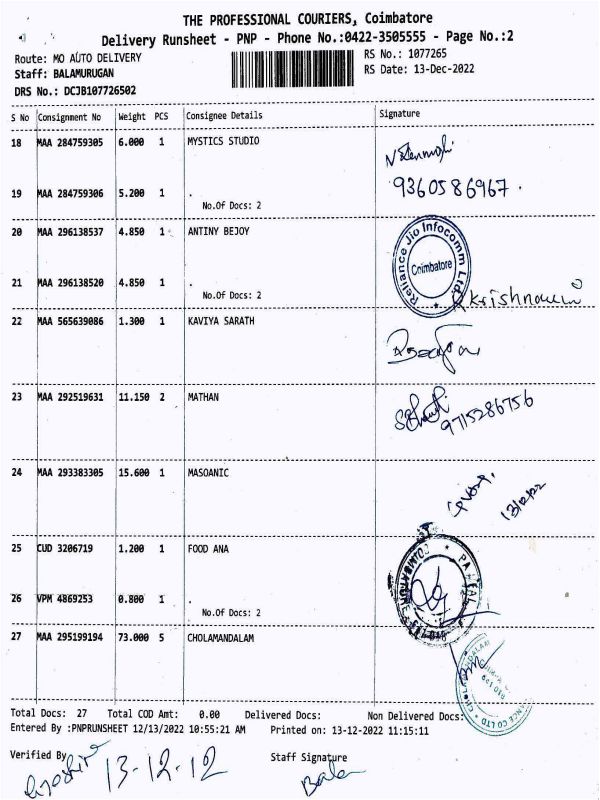 THE PROFESSIONAL COURIERS, Coimbatore
Delivery Runsheet - PNP - Phone No.:0422-3505555 - Page No.:2
Route: MO AUTO DELIVERY RS No.: 1077265
Staff: BALAMURUGAN RS Date: 13-Dec-2022
DRS No.: DCJB107726502
S No Consignment No Weight PCS Consignee Details Signature
18 MAA 284759305 6.000 1 MYSTICS STUDIO
9360586967.
19 MAA 284759306 5.200 1 .
No.Of Docs: 2
20 MAA 296138537 4.850 1 ANTINY BEJOY
Reliance Jio Infocomm Ltd.
Coimbatore
21 MAA 296138520 4.850 1 .
No.Of Docs: 2
22 MAA 565639086 1.300 1 KAVIYA SARATH
23 MAA 292519631 11.150 2 MATHAN
9715286756
24 MAA 293383305 15.600 1 MASOANIC
13/12/22
25 CUD 3206719 1.200 1 FOOD ANA
26 VPM 4869253 0.800 1 .
No.Of Docs: 2
27 MAA 295199194 73.000 5 CHOLAMANDALAM
Total Docs: 27 Total COD Amt: 0.00 Delivered Docs: Non Delivered Docs:
Entered By :PNPRUNSHEET 12/13/2022 10:55:21 AM Printed on: 13-12-2022 11:15:11
Verified By Staff Signature
13-12-12 Bala